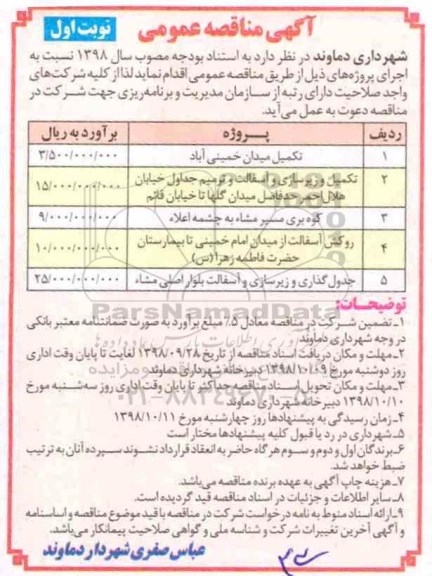 آگهی مناقصه عمومی
نوبت اول
شهرداری دماوند در نظر دارد به استناد بودجه مصوب سال ۱۳۹۸ نسبت به
اجرای پروژه‌های ذیل از طریق مناقصه عمومی اقدام نماید لذا از کلیه شرکت‌های
واجد صلاحیت دارای رتبه از سازمان مدیریت و برنامه‌ریزی جهت شرکت در
مناقصه دعوت به عمل می‌آید.
ردیف پروژه برآورد به ریال
۱ تکمیل میدان خمینی آباد ۳/۵۰۰/۰۰۰/۰۰۰
۲ تکمیل و زیرسازی و آسفالت و ترمیم جداول خیابان
هلال احمر حدفاصل میدان گلها تا خیابان قائم ۱۵/۰۰۰/۰۰۰/۰۰۰
۳ کوه بری مسیر مشاء به چشمه اعلاء ۹/۰۰۰/۰۰۰/۰۰۰
۴ روکش آسفالت از میدان امام خمینی تا بیمارستان
حضرت فاطمه زهرا (س) ۱۰/۰۰۰/۰۰۰/۰۰۰
۵ جدول گذاری و زیرسازی و آسفالت بلوار اصلی مشاء ۲۵/۰۰۰/۰۰۰/۰۰۰
ParsNamadData
توضیحات:
۱ـ تضمین شرکت در مناقصه معادل ۵٪ مبلغ برآورد به صورت ضمانتنامه معتبر بانکی
در وجه شهرداری دماوند
۲ـ مهلت و مکان دریافت اسناد مناقصه از تاریخ ۱۳۹۸/۰۹/۲۸ لغایت تا پایان وقت اداری
روز دوشنبه مورخ ۱۳۹۸/۱۰/۰۹ دبیرخانه شهرداری دماوند
۳ـ مهلت و مکان تحویل اسناد مناقصه حداکثر تا پایان وقت اداری روز سه‌شنبه مورخ
۱۳۹۸/۱۰/۱۰ دبیرخانه شهرداری دماوند
۴ـ زمان رسیدگی به پیشنهادها روز چهارشنبه مورخ ۱۳۹۸/۱۰/۱۱
۵ـ شهرداری در رد یا قبول کلیه پیشنهادها مختار است
۶ـ برندگان اول و دوم و سوم هرگاه حاضر به انعقاد قرارداد نشوند سپرده آنان به ترتیب
ضبط خواهد شد.
۷ـ هزینه چاپ آگهی به عهده برنده مناقصه می‌باشد.
۸ـ سایر اطلاعات و جزئیات در اسناد مناقصه قید گردیده است.
۹ـ ارائه اسناد منوط به نامه درخواست شرکت در مناقصه با قید موضوع مناقصه و اساسنامه
و آگهی آخرین تغییرات شرکت و شناسه ملی و گواهی صلاحیت پیمانکار می‌باشد.
عباس صفری شهردار دماوند